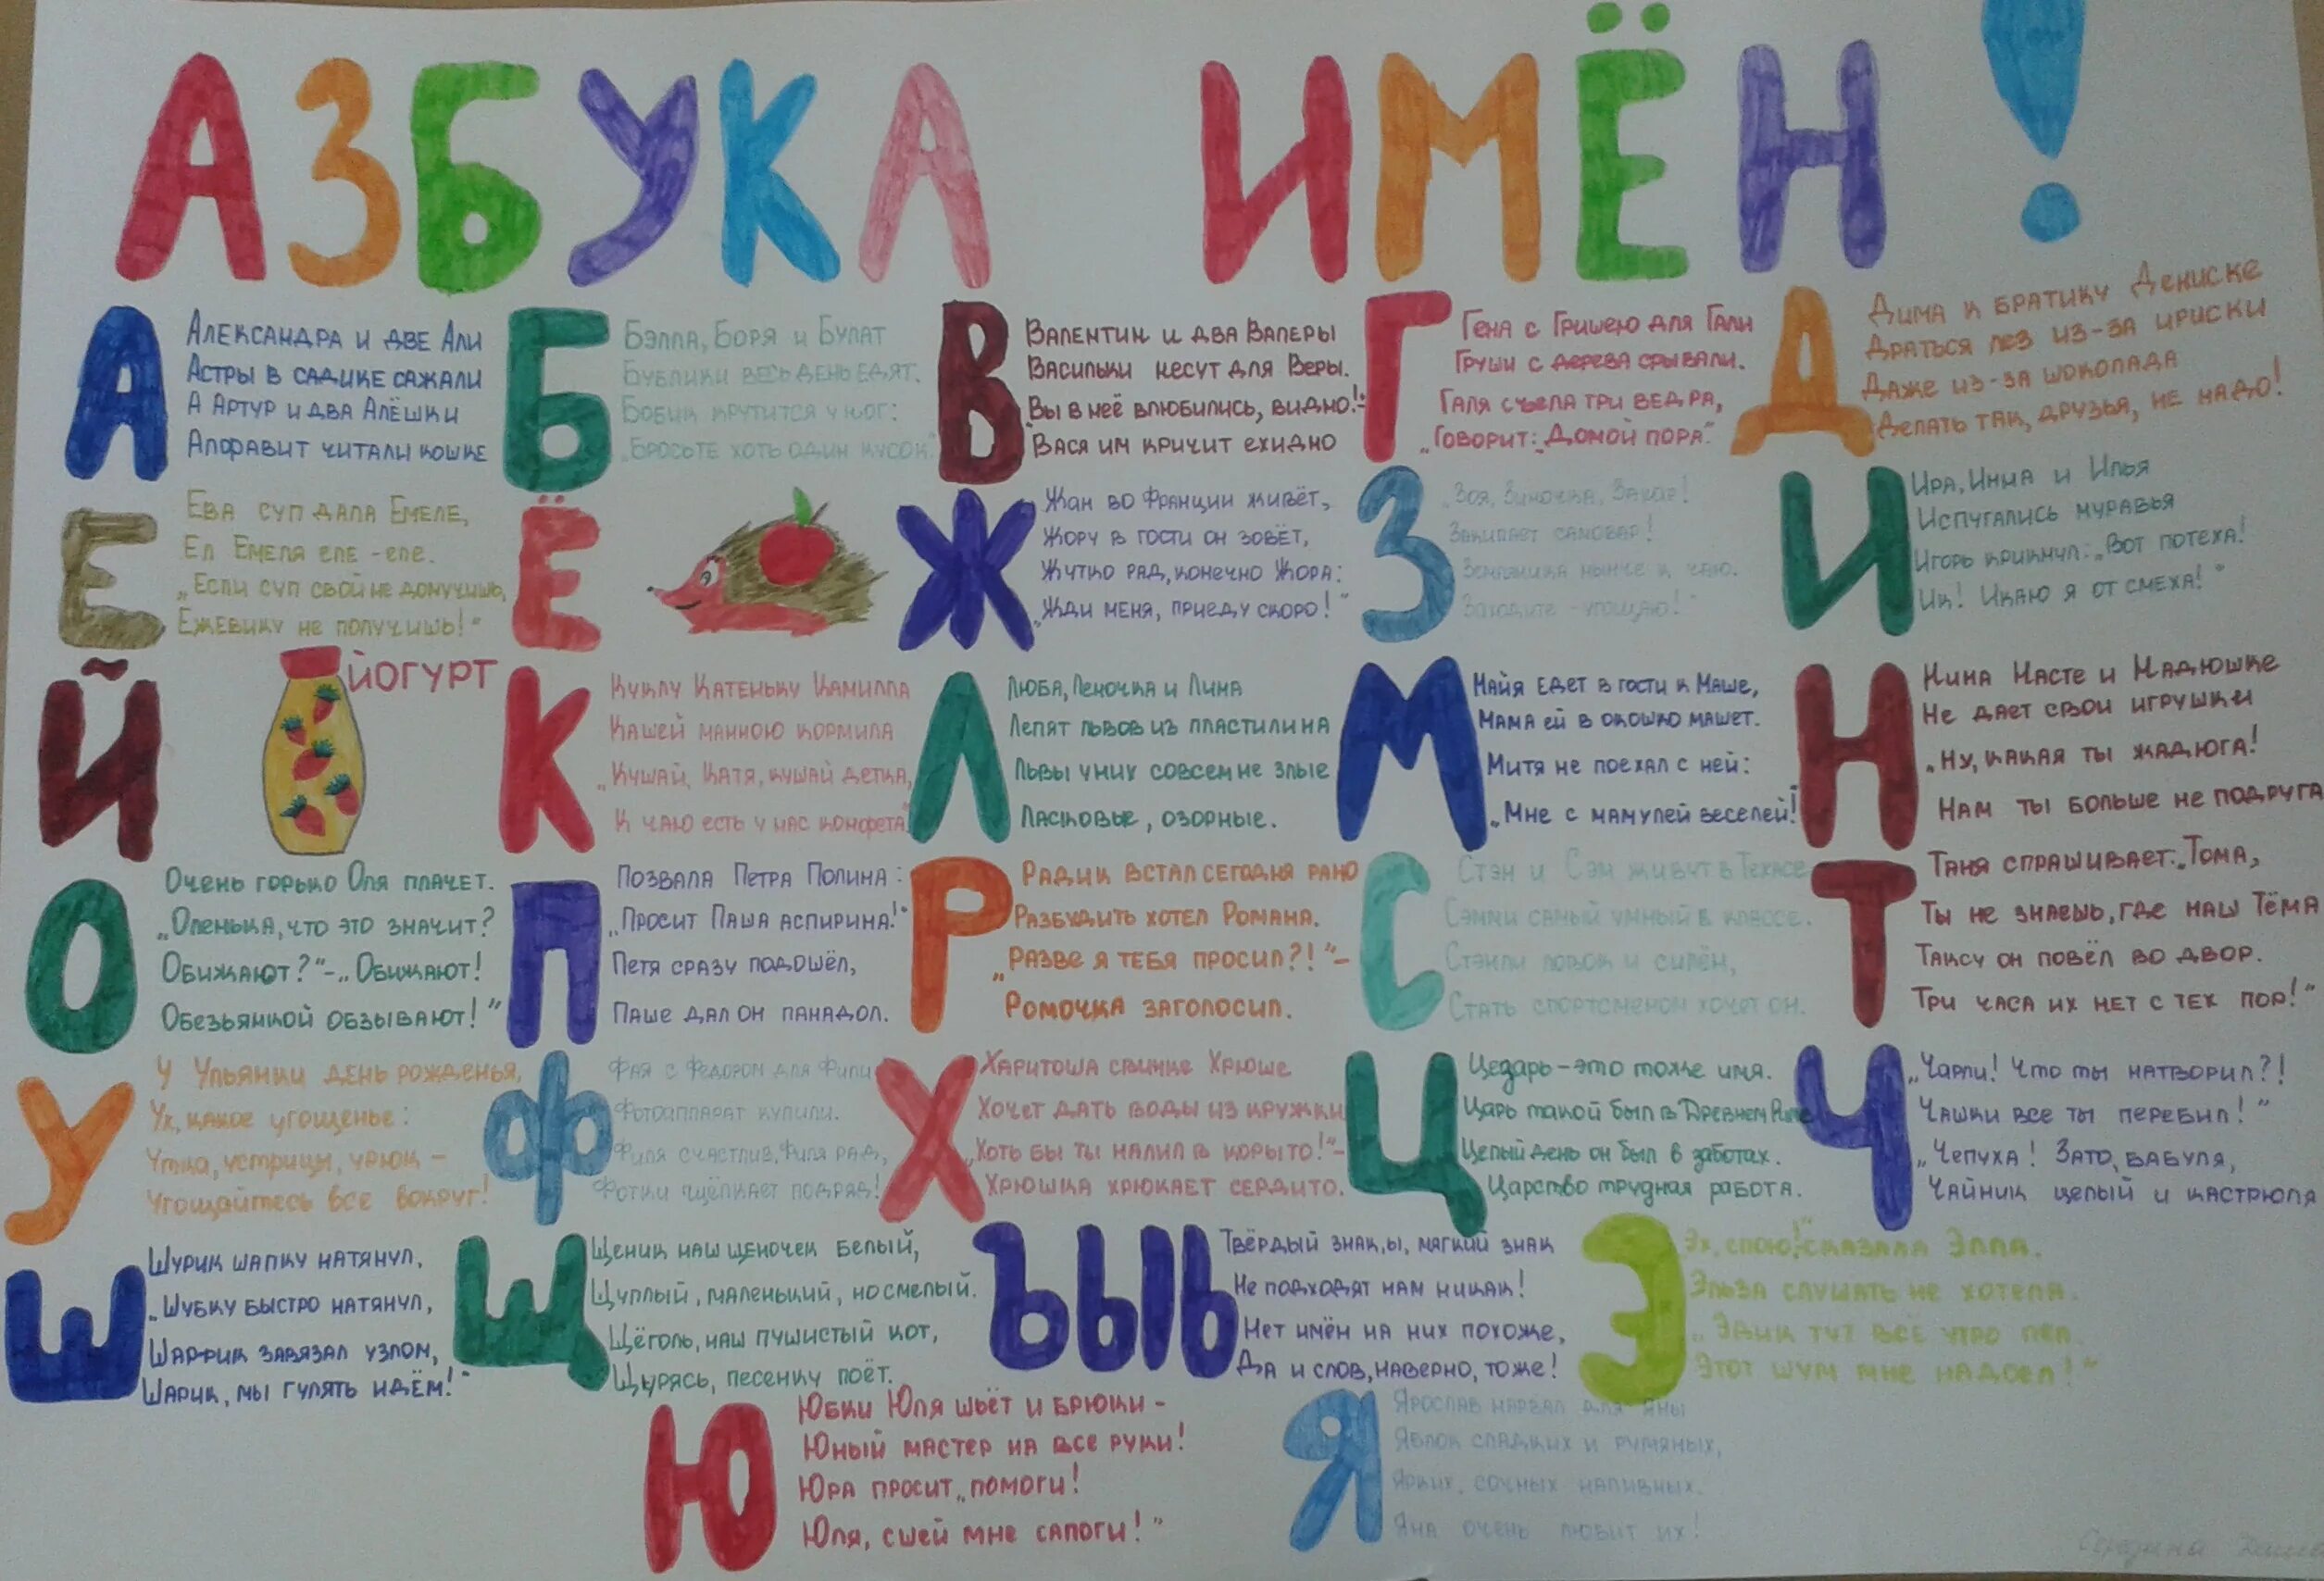 АЗБУКА ИМЁН!
А
Александра и две Али
Астры в садике сажали
А Артур и два Алёшки
Алфавит читали кошке
Б
Бэлла, Боря и Булат
Бублики весь день едят.
Бобик крутится у ног:
„Бросьте хоть один кусок"
В
Валентин и два Валеры
Васильки несут для Веры.
„Вы в неё влюбились, видно!"-
Вася им кричит ехидно
Г
Гена с Гришею для Гали
Груши с дерева срывали.
Галя съела три ведра,
„Говорит: „Домой пора".
Д
Дима к братику Дениске
Драться лез из-за ириски
Даже из-за шоколада
Делать так, друзья, не надо!
Е
Ева суп дала Емеле,
Ел Емеля еле-еле.
„Если суп свой не домучишь,
Ежевику не получишь!"
Ё
Ж
Жан во Франции живёт,
Жору в гости он зовёт,
Жутко рад, конечно Жора:
„Жди меня, приеду скоро!"
З
„Зоя, Зиночка, Захар!
Закипает самовар!
Земляника нынче к чаю.
Заходите - угощаю!"
И
Ира, Инна и Илья
Испугались муравья
Игорь крикнул: „Вот потеха!
Ик! Икаю я от смеха!"
Й
ЙОГУРТ
К
Куклу Катеньку Камилла
Кашей манною кормила
„Кушай, Катя, кушай детка,
К чаю есть у нас конфета"
Л
Люба, Леночка и Лина
Лепят львов из пластилина
Львы у них совсем не злые
Ласковые, озорные.
М
Майя едет в гости к Маше,
Мама ей в окошко машет.
Митя не поехал с ней:
„Мне с мамулей веселей!"
Н
Нина Насте и Надюшке
Не дает свои игрушки
„Ну, какая ты жадюга!
Нам ты больше не подруга
О
Очень горько Оля плачет.
„Оленька, что это значит?
Обижают?"-„Обижают!
Обезьянкой обзывают!"
П
Позвала Петра Полина:
„Просит Паша аспирина!"
Петя сразу подошёл,
Паше дал он панадол.
Р
Радик встал сегодня рано
Разбудить хотел Романа.
„Разве я тебя просил?!"-
Ромочка заголосил.
С
Стэн и Сэм живут в Техасе
Сэмми самый умный в классе.
Стэнли ловок и силён,
Стать спортсменом хочет он.
Т
Таня спрашивает: „Тома,
Ты не знаешь, где наш Тёма
Таксу он повёл во двор.
Три часа их нет с тех пор!"
У
У Ульянки день рожденья,
Ух, какое угощенье:
Утка, устрицы, урюк -
Угощайтесь все вокруг!
Ф
Фая с Федором для Фили
Фотоаппарат купили.
Филя счастлив, Филя рад,
Фотки щёлкает подряд!
Х
Харитоша свинке Хрюше
Хочет дать воды из кружки
„Хоть бы ты налил в корыто!"-
Хрюшка хрюкает сердито.
Ц
Цезарь - это тоже имя.
Царь такой был в Древнем Риме
Целый день он был в заботах.
Царство трудная работа.
Ч
„Чарли! Что ты натворил?!
Чашки все ты перебил!"
„Чепуха! Зато, бабуля,
Чайник целый и кастрюля
Ш
Шурик шапку натянул,
„Шубку быстро натянул,
Шарфик завязал узлом,
Шарик, мы гулять идём!"
Щ
Щеник наш щеночек белый,
Щуплый, маленький, но смелый.
Щёголь, наш пушистый кот,
Щурясь, песенку поёт.
ЪЫЬ
Твёрдый знак, ы, мягкий знак
Не подходят нам никак!
Нет имён на них похоже,
Да и слов, наверно, тоже!
Э
Эх, спою!" сказала Элла.
Эльза слушать не хотела.
„Эдик тут всё утро пел
Этот шум мне надоел!"
Ю
Юбки Юля шьёт и брюки -
Юный мастер на все руки!
Юра просит „помоги!
Юля, сшей мне сапоги!"
Я
Ярослав нарвал для Яны
Яблок сладких и румяных,
Ярких, сочных наливных.
Яна очень любит их!